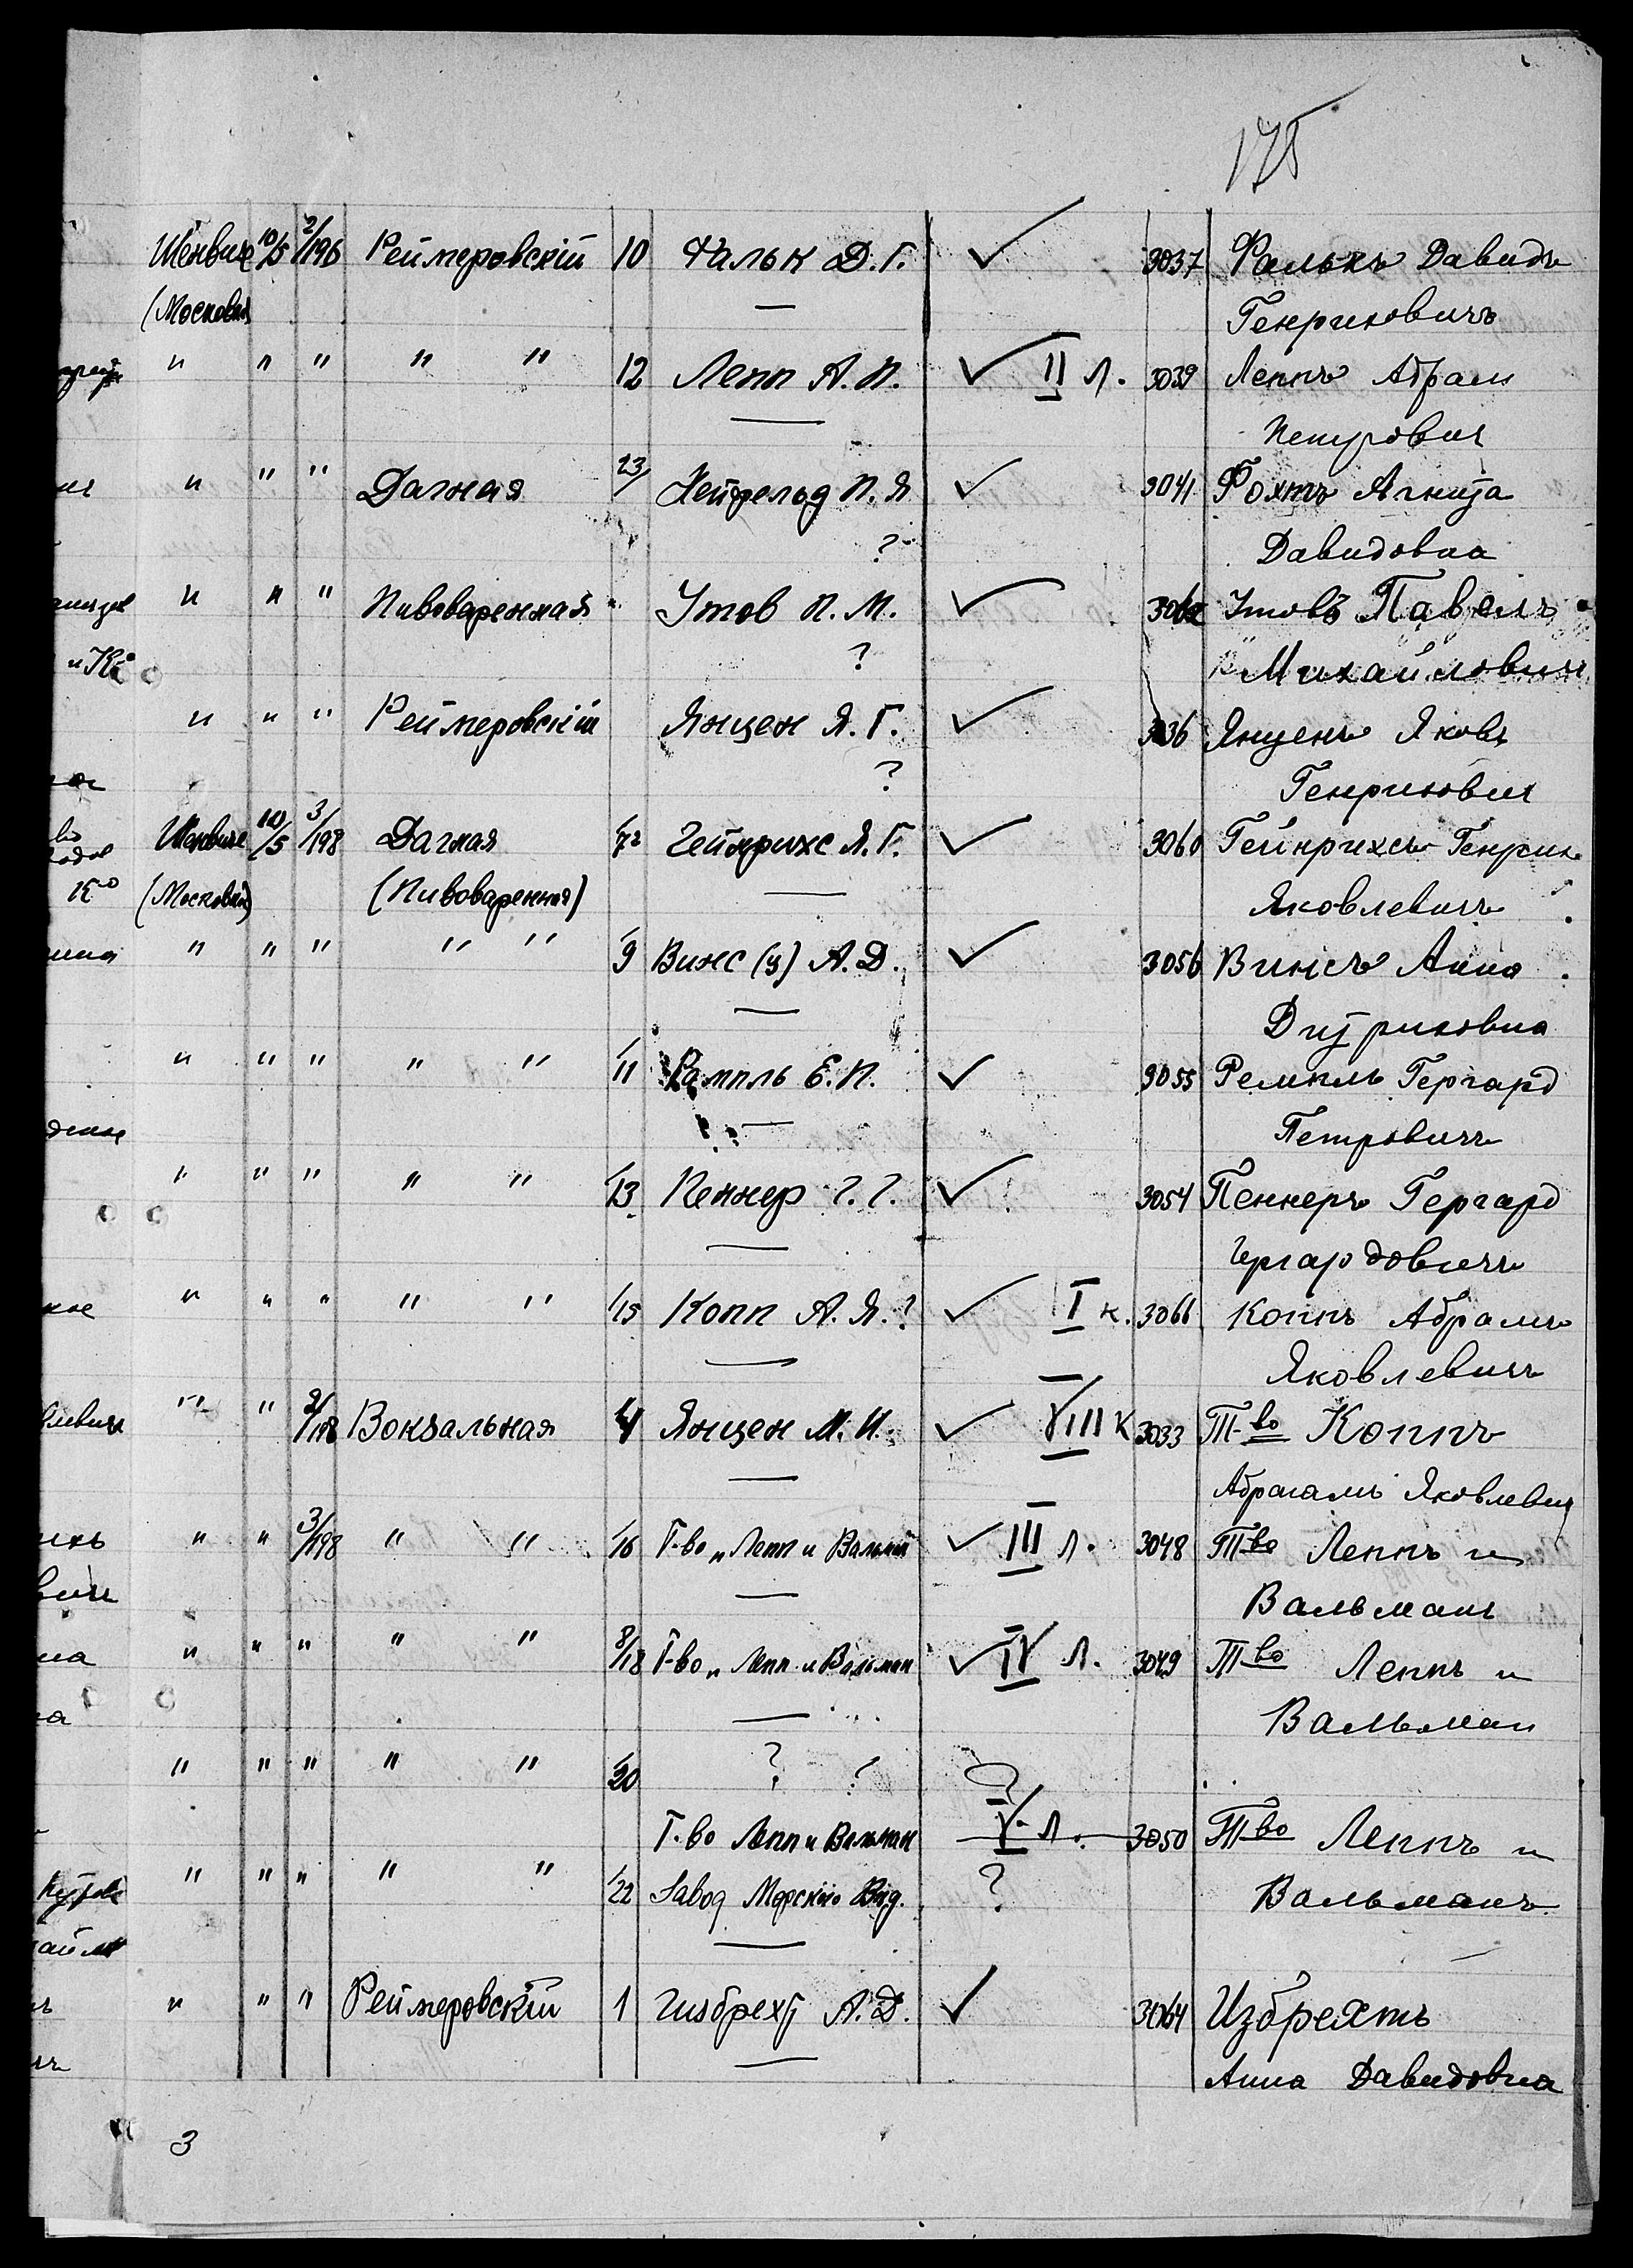 175
Шенвизе 10/5 2/196 Реймеровскій 10 Фальк Д.Г. ✓ 3037 Фалькъ Давидъ
(Московка) Генриховичъ
" " " " " 12 Лепп А.П. ✓ II Л. 3039 Леппъ Абрам
Петрович
" " " Дачная 23/ Нейфельд П.Я ✓ 3041 Фохтъ Агнета
? Давидовна
" " " Пивоваренная Утов П.М. ✓ Утовъ Павелъ
и Ко ? Михайлович
" " " Реймеровскій Янцен Я.Г. ✓ 3036 Янценъ Яковъ
? Генрихович
Шенвизе 10/5 3/198 Дачная Гейнрихс Я.Г. ✓ 3060 Гейнрихсъ Генрих
Ко (Московка) (Пивоваренная) Яковлевичъ
" " " " " /9 Винс (у) А.Д. ✓ 3056 Винсъ Анна
Дитриховна
" " " " " /11 Рампль Е.П. ✓ 3055 Ремпль Гергард
Петровичъ
" " " " " /13 Пеннер Г.Г. ✓ 3054 Пеннеръ Гергард
Гергардовичъ
" " " " " /15 Копп А.Я.? ✓ I к. 3066 Коппъ Абрамъ
Яковлевичъ
" " 2/198 Вокзальная 4 Янцен М.И. ✓ VIII К 3033 Т-во Коппъ
Абрагамъ Яковлевич
" " 3/198 " " /16 Т-во „Лепп и Вальман ✓ III Л. 3048 Т-во Леппъ и
Вальманъ
" " " " " 8/18 Т-во „Лепп и Вальман ✓ IV Л. 3049 Т-во Леппъ и
Вальман
" " " " " /20 ? ? ?
Т-во Лепп и Вальман V Л. 3050 Т-во Леппъ и
" " " " " /22 Завод Морского Вед. ? Вальманъ
" " " Реймеровскій 1 Гизбрехт А.Д. ✓ 3064 Избрехтъ
Анна Давидовна
3